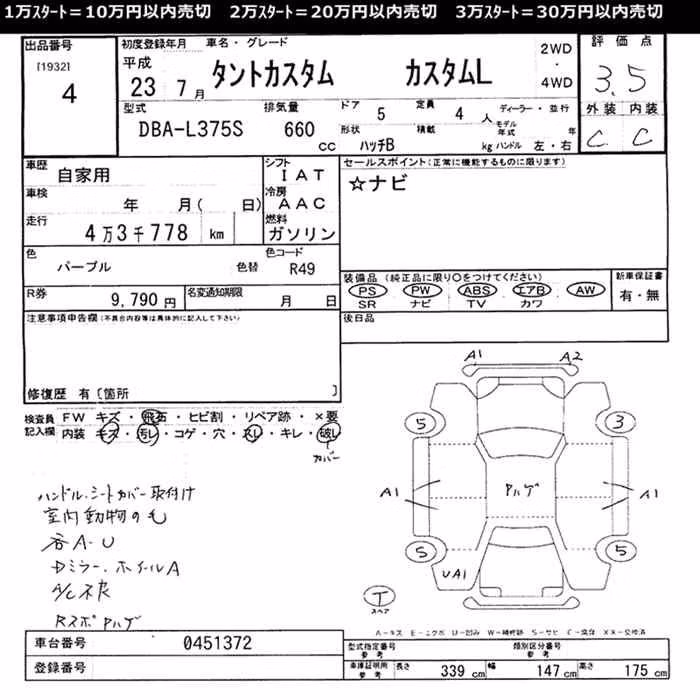 1万ｽﾀｰﾄ＝10万円以内売切　2万ｽﾀｰﾄ＝20万円以内売切　3万ｽﾀｰﾄ＝30万円以内売切
出品番号
[1932]
4
初度登録年月
平成
23 7月
車名・グレード
タントカスタム　カスタムL
2WD
・
4WD
評価点
3.5
外装 内装
C C
型式
DBA-L375S
排気量
660 cc
ドア 5
定員 4 人
形状 ハッチB
積載 kg
ディーラー・並行
モデル年式 年
ハンドル 左・右
車歴 自家用
車検 年 月( 日)
走行 4万3千778 km
色 パープル 色替
色コード R49
シフト IAT
冷房 AAC
燃料 ガソリン
R券 9,790円
名変通知期限 月 日
セールスポイント(正常に機能するものに限ります)
☆ナビ
装備品(純正品に限り○をつけてください)
PS PW ABS エアB AW
SR ナビ TV カワ
新車保証書
有・無
後日品
注意事項申告欄(不具合内容等は具体的に記入して下さい)
修復歴 有〔箇所 〕
検査員記入欄
FW キズ・飛石・ヒビ割・リペア跡・×要
内装 キズ・汚レ・コゲ・穴・スレ・キレ・破レ
カバー
ハンドル、シートカバー取付け
室内動物の毛
各A・U
Dミラー、ホイルA
A/C不良
RスポPハゲ
A1 A2
5 3
A1 Pハゲ A1
5 5
UA1
T
スペア
A－キズ E－エクボ U－凹ミ W－補修跡 S－サビ C－腐食 XX－交換済
車台番号 0451372
登録番号
型式指定番号
参考
類別区分番号
参考
車庫証明用
参考
長さ 339 cm 幅 147 cm 高さ 175 cm